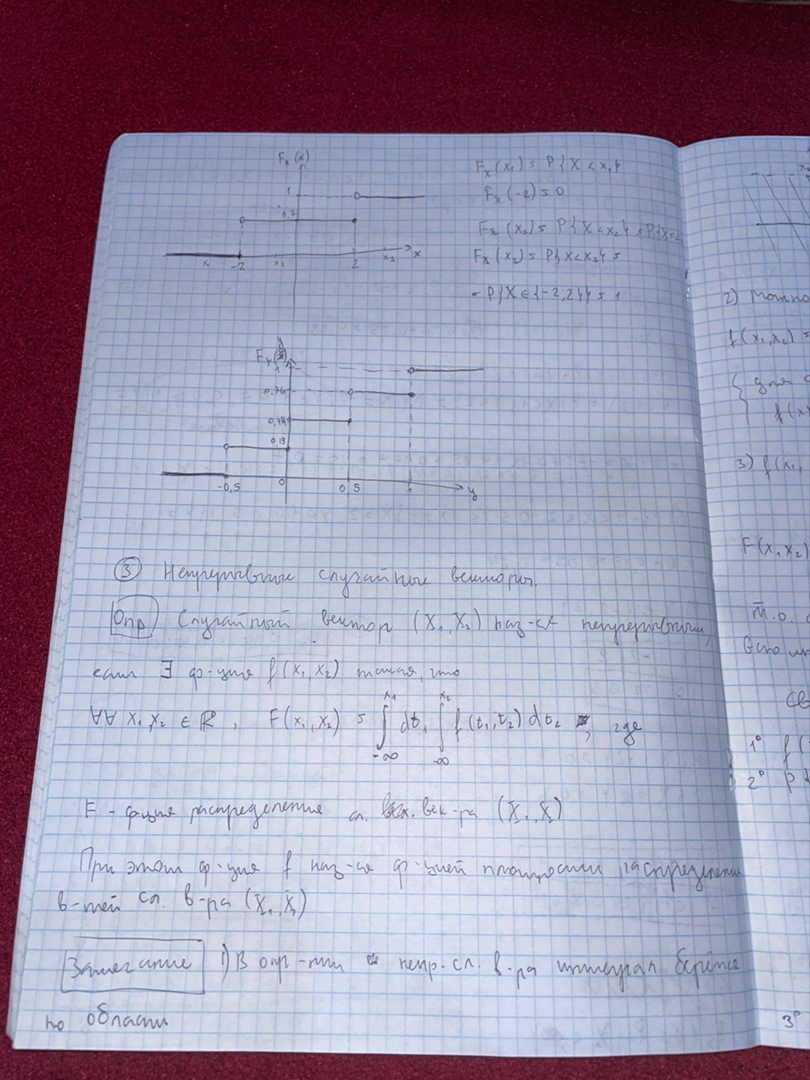 F_X (x)
1
0,7
x₁ -2 x₂ 2 x₃ x
F_X (x₁) = P{X < x₁}
F_X (-2) = 0
F_X (x₂) = P{X < x₂} = P{X=-2
F_X (x₃) = P{X < x₃} =
= P{X ∈ {-2,2}} = 1
y
F_Y
1
0,76
0,44
0,19
-0,5 0 0,5 1 y
③ Непрерывные случайные векторы.
Опр Случайный вектор (X₁, X₂) наз-ся непрерывным,
если ∃ ф-ция f(x₁, x₂) такая, что
∀∀ x₁, x₂ ∈ ℝ, F(x₁, x₂) = ∫_{-∞}^{x₁} dt₁ ∫_{-∞}^{x₂} f(t₁, t₂) dt₂, где
F - ф-ция распределения сл. век-ра (X₁, X₂)
При этом ф-ция f наз-ся ф-цией плотности распределения
в-тей сл. в-ра (X₁, X₂)
Замечание 1) В опр-нии непр. сл. в-ра интеграл берётся
по области
2) Можно
f(x₁, x₂) =
для
f(x
3) f(x₁,
F(x₁, x₂)
Т.о.
св
1° f(
2° P{
3°